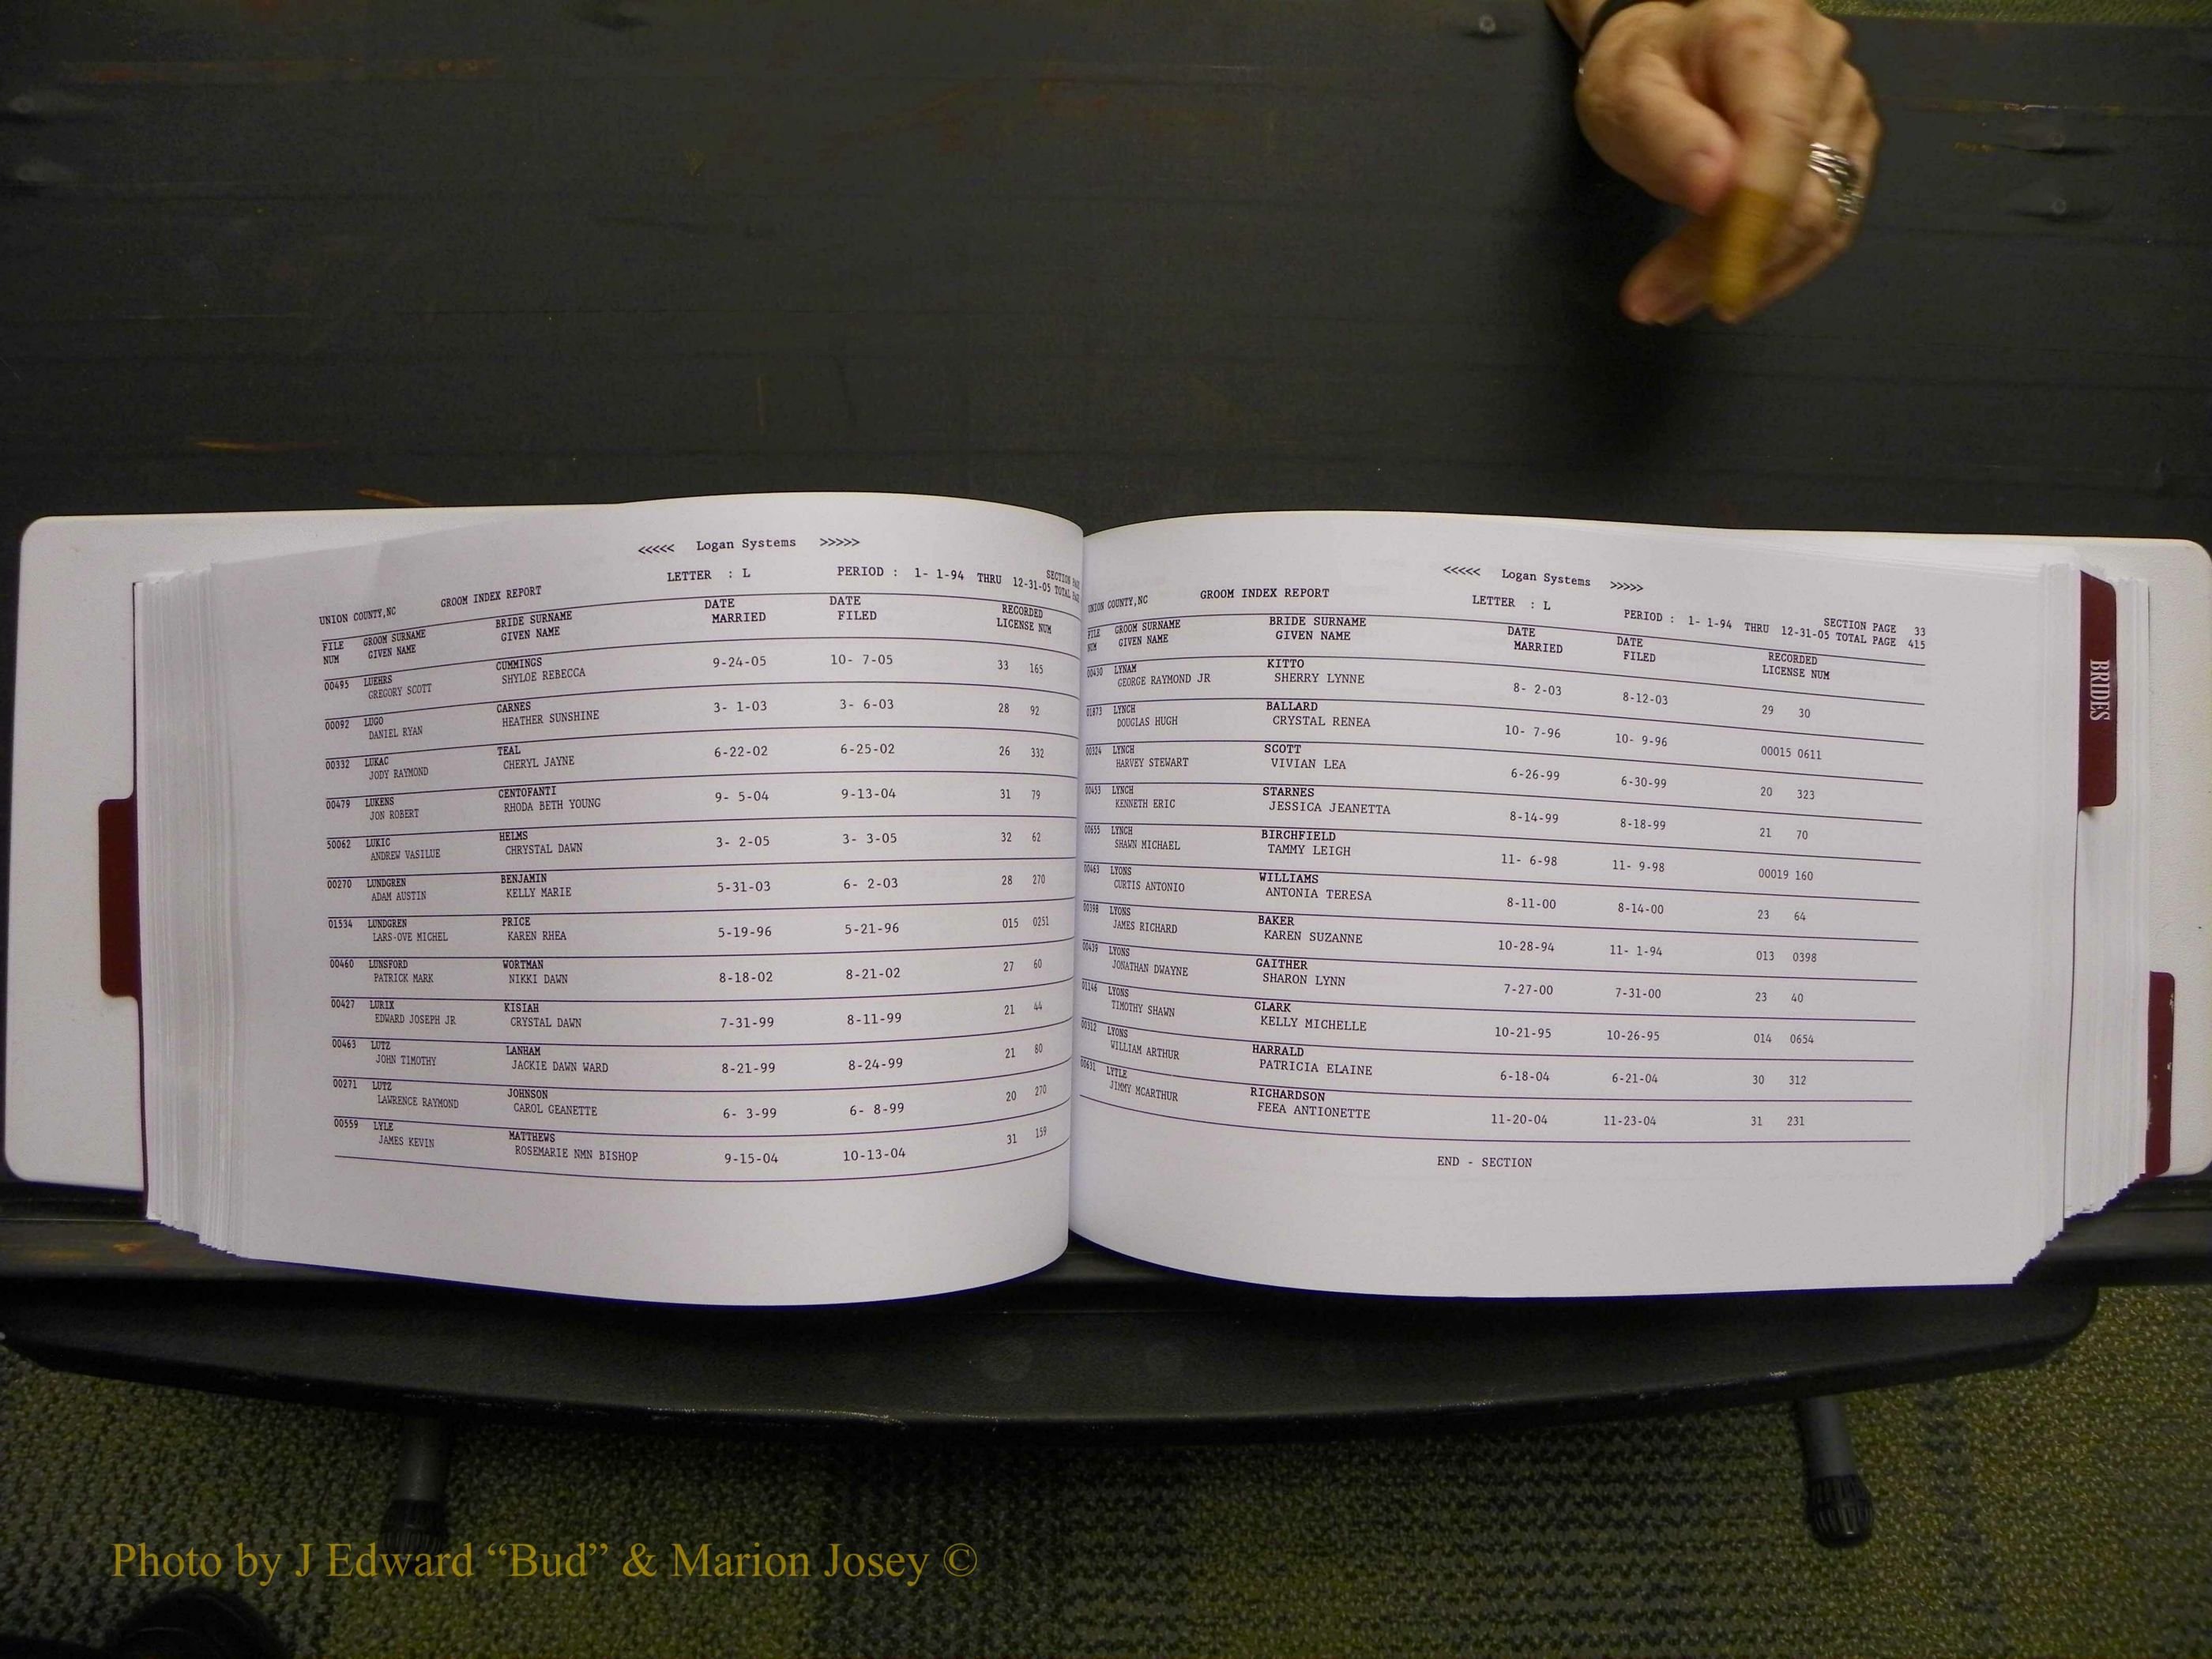 <<<<< Logan Systems >>>>>
UNION COUNTY,NC GROOM INDEX REPORT LETTER : L PERIOD : 1- 1-94 THRU 12-31-05 TOTAL
SECTION
FILE NUM GROOM SURNAME GIVEN NAME BRIDE SURNAME GIVEN NAME DATE MARRIED DATE FILED RECORDED LICENSE NUM
00495 LUEHRS CUMMINGS 9-24-05 10- 7-05 33 165
GREGORY SCOTT SHYLOE REBECCA
00092 LUGO CARNES 3- 1-03 3- 6-03 28 92
DANIEL RYAN HEATHER SUNSHINE
00332 LUKAC TEAL 6-22-02 6-25-02 26 332
JODY RAYMOND CHERYL JAYNE
00479 LUKENS CENTOFANTI 9- 5-04 9-13-04 31 79
JON ROBERT RHODA BETH YOUNG
50062 LUKIC HELMS 3- 2-05 3- 3-05 32 62
ANDREW VASILUE CHRYSTAL DAWN
00270 LUNDGREN BENJAMIN 5-31-03 6- 2-03 28 270
ADAM AUSTIN KELLY MARIE
01534 LUNDGREN PRICE 5-19-96 5-21-96 015 0251
LARS-OVE MICHEL KAREN RHEA
00460 LUNSFORD WORTMAN 8-18-02 8-21-02 27 60
PATRICK MARK NIKKI DAWN
00427 LURIX KISIAH 7-31-99 8-11-99 21 44
EDWARD JOSEPH JR CRYSTAL DAWN
00463 LUTZ LANHAM 8-21-99 8-24-99 21 80
JOHN TIMOTHY JACKIE DAWN WARD
00271 LUTZ JOHNSON 6- 3-99 6- 8-99 20 270
LAWRENCE RAYMOND CAROL GEANETTE
00559 LYLE MATTHEWS 9-15-04 10-13-04 31 159
JAMES KEVIN ROSEMARIE NMN BISHOP
<<<<< Logan Systems >>>>>
UNION COUNTY,NC GROOM INDEX REPORT LETTER : L PERIOD : 1- 1-94 THRU 12-31-05 TOTAL PAGE 415
SECTION PAGE 33
FILE NUM GROOM SURNAME GIVEN NAME BRIDE SURNAME GIVEN NAME DATE MARRIED DATE FILED RECORDED LICENSE NUM
00430 LYNAM KITTO 8- 2-03 8-12-03 29 30
GEORGE RAYMOND JR SHERRY LYNNE
01873 LYNCH BALLARD 10- 7-96 10- 9-96 00015 0611
DOUGLAS HUGH CRYSTAL RENEA
00324 LYNCH SCOTT 6-26-99 6-30-99 20 323
HARVEY STEWART VIVIAN LEA
00453 LYNCH STARNES 8-14-99 8-18-99 21 70
KENNETH ERIC JESSICA JEANETTA
00655 LYNCH BIRCHFIELD 11- 6-98 11- 9-98 00019 160
SHAWN MICHAEL TAMMY LEIGH
00463 LYONS WILLIAMS 8-11-00 8-14-00 23 64
CURTIS ANTONIO ANTONIA TERESA
00398 LYONS BAKER 10-28-94 11- 1-94 013 0398
JAMES RICHARD KAREN SUZANNE
00439 LYONS GAITHER 7-27-00 7-31-00 23 40
JONATHAN DWAYNE SHARON LYNN
01146 LYONS CLARK 10-21-95 10-26-95 014 0654
TIMOTHY SHAWN KELLY MICHELLE
00312 LYONS HARRALD 6-18-04 6-21-04 30 312
WILLIAM ARTHUR PATRICIA ELAINE
00631 LYTLE RICHARDSON 11-20-04 11-23-04 31 231
JIMMY MCARTHUR FEEA ANTIONETTE
END - SECTION
BRIDES
Photo by J Edward “Bud” & Marion Josey ©